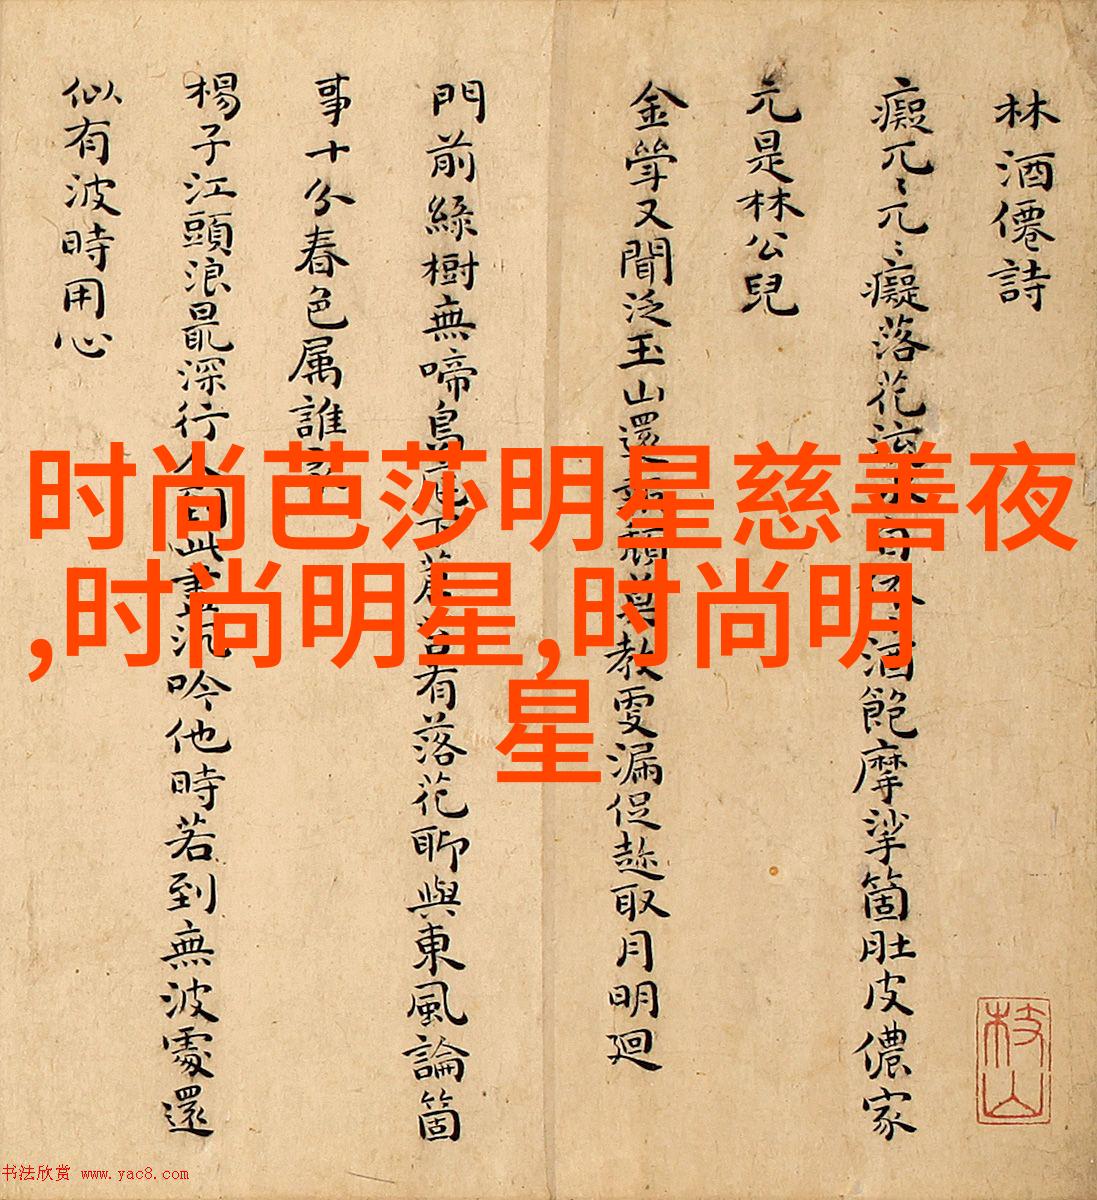 林酒僊詩
癡兀〻兀〻癡落花流水自酒飽摩挲箇肚皮儂家
元是林公兒
金斝又聞泛玉山還頹莫教更漏促趁取月明廻
門前綠樹無啼鳥庭下蒼苔有落花聊與東風論箇
事十分春色属誰家
楊子江頭浪最深行人到此盡沉吟他時若到無波處還
似有波時用心
枝山
时尚芭莎明星慈善夜
,时尚明星,时尚明
星
书法欣赏 www.yac8.com